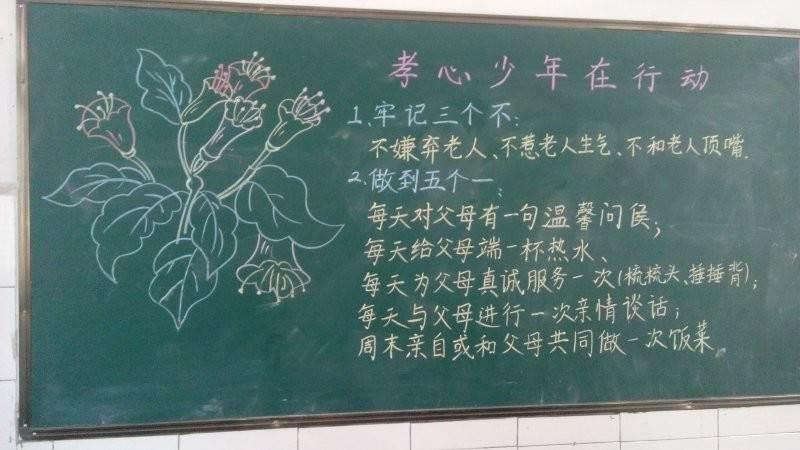 孝心少年在行动
1、牢记三个不:
不嫌弃老人、不惹老人生气、不和老人顶嘴.
2、做到五个一:
每天对父母有一句温馨问侯;
每天给父母端一杯热水、
每天为父母真诚服务一次(梳梳头、捶捶背);
每天与父母进行一次亲情谈话;
周末亲自或和父母共同做一次饭菜.